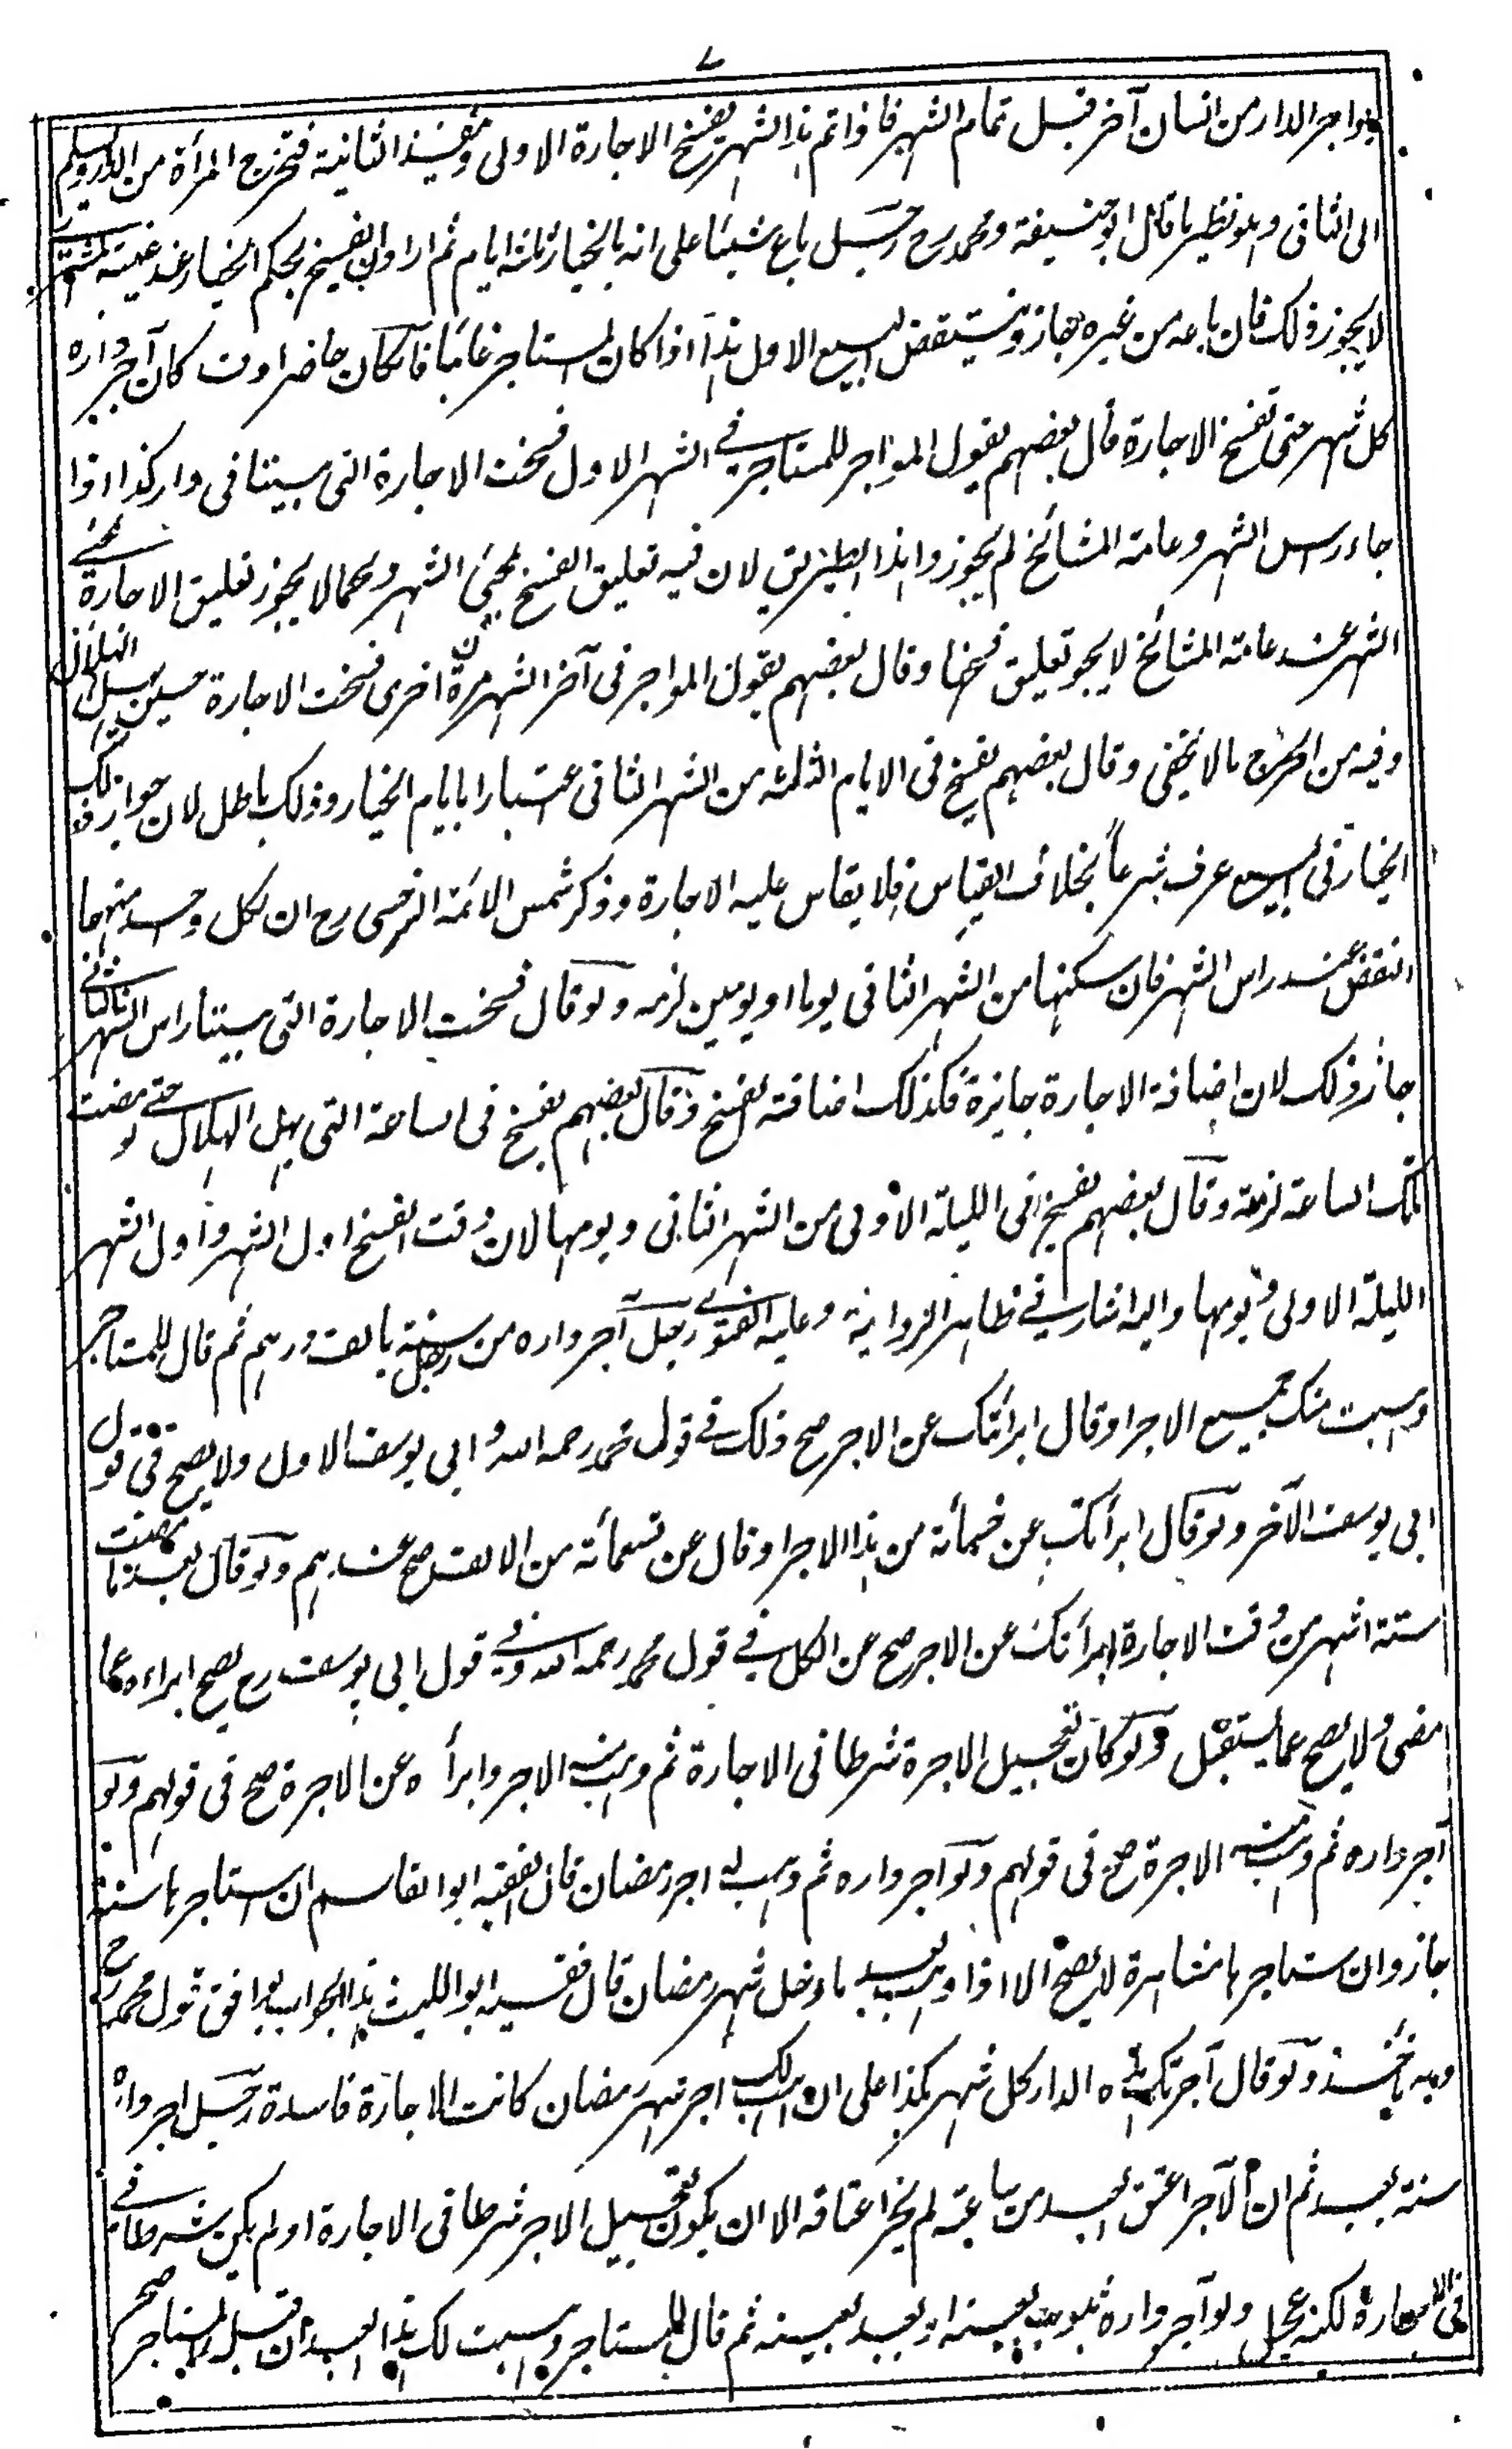 ٧
يواجر الدار من انسان آخر قبل تمام الشهر فاذا تم هذا الشهر يفسخ الاجارة الاولى وتنفيذ الثانية فتخرج المرأة من الدار ويسلم
الى الثانى وهو نظير ما قال ابو حنيفة ومحمد رح رجل باع شيئا على انه بالخيار ثلثة ايام ثم اراد ان يفسخ بحكم الخيار عند غيبة المشترى
لا يجوز ذلك فان باعه من غيره جاز وينتقض البيع الاول هذا اذا كان المستاجر غائبا فان كان حاضرا وقت كان آجر داره
كل شهر حتى تفسخ الاجارة قال بعضهم يقول المواجر للمستاجر فى الشهر الاول فسخت الاجارة التى بيننا فى دار كذا اذا
جاء رس الشهر وعامة المشائخ لم يجوزوا هذا الطريق لان فيه تعليق الفسخ بمجئ الشهر وكما لا يجوز تعليق الاجارة بمجئ
الشهر عند عامة المشائخ لا يجوز تعليق فسخها وقال بعضهم يقول المواجر فى آخر الشهر مرة اخرى فسخت الاجارة حين يهل الهلال
وفيه من الحرج ما لا يخفى وقال بعضهم يفسخ فى الايام الثلثه من الشهر الثانى اعتبارا بايام الخيار وذلك باطل لان جواز ذلك
الخيار فى البيع عرف شرعاً بخلاف القياس فلا يقاس عليه الاجارة وذكر شمس الائمة السرخسى رح ان لكل واحد منهما
النقض عند راس الشهر فان سكنها من الشهر الثانى يوما او يومين لزمه ولو قال فسخت الاجارة التى بيننا راس الشهر الثانى
جاز ذلك لان اضافة الاجارة جايزة فكذلك اضافة الفسخ وقال بعضهم يفسخ فى الساعة التى يهل الهلال حتى لو مضت
تلك الساعة لزمه وقال بعضهم يفسخ فى الليلة الاولى من الشهر الثانى ويومها لان وقت الفسخ اول الشهر واول الشهر
الليلة الاولى ويومها واليه اشار فى ظاهر الرواية وعليه الفتوى رجل آجر داره من رجل سنة بالف درهم ثم قال للمستاجر
وهبت منك جميع الاجر او قال ابرأتك عن الاجر صح ذلك فى قول محمد رحمه الله و ابى يوسف الاول ولا يصح فى قول
ابى يوسف الآخر ولو قال ابرأتك عن خمسمأة من هذا الاجر او قال عن تسعمأة من الالف صح عندهم ولو قال بعد ما مضت
ستة اشهر من وقت الاجارة ابرأتك عن الاجر صح عن الكل فى قول محمد رحمه الله وفى قول ابى يوسف رح يصح ابراءه عما
مضى ولا يصح عما يستقبل ولو كان تعجيل الاجرة شرطا فى الاجارة ثم وهب منه الاجر وابرأ ه عن الاجرة صح فى قولهم ولو
آجر داره ثم وهب منه الاجرة صح فى قولهم ولو آجر داره ثم وهب له اجر رمضان قال الفقيه ابو القاسم ان استاجرها سنة
جاز وان استاجرها مشاهرة لا يصح الا اذا وهب بعد ما دخل شهر رمضان قال فقيه ابو الليث هذا الجواب يوافق قول محمد رح
وبه ناخذ ولو قال آجرتك هذه الدار كل شهر بكذا على ان اهب لك اجر شهر رمضان كانت الاجارة فاسدة رجل اجر داره
سنة بعبد ثم ان الآجر اعتق العبد من ساعته لم يجز اعتاقه الا ان يكون تعجيل الاجر شرطا فى الاجارة او لم يكن شرطا فى
فى الاجارة لكنه عجل ولو آجر داره بثوب بعينه او بعبد بعينه ثم قال للمستاجر وهبت لك هذا العبد ان قبل المستاجر صح